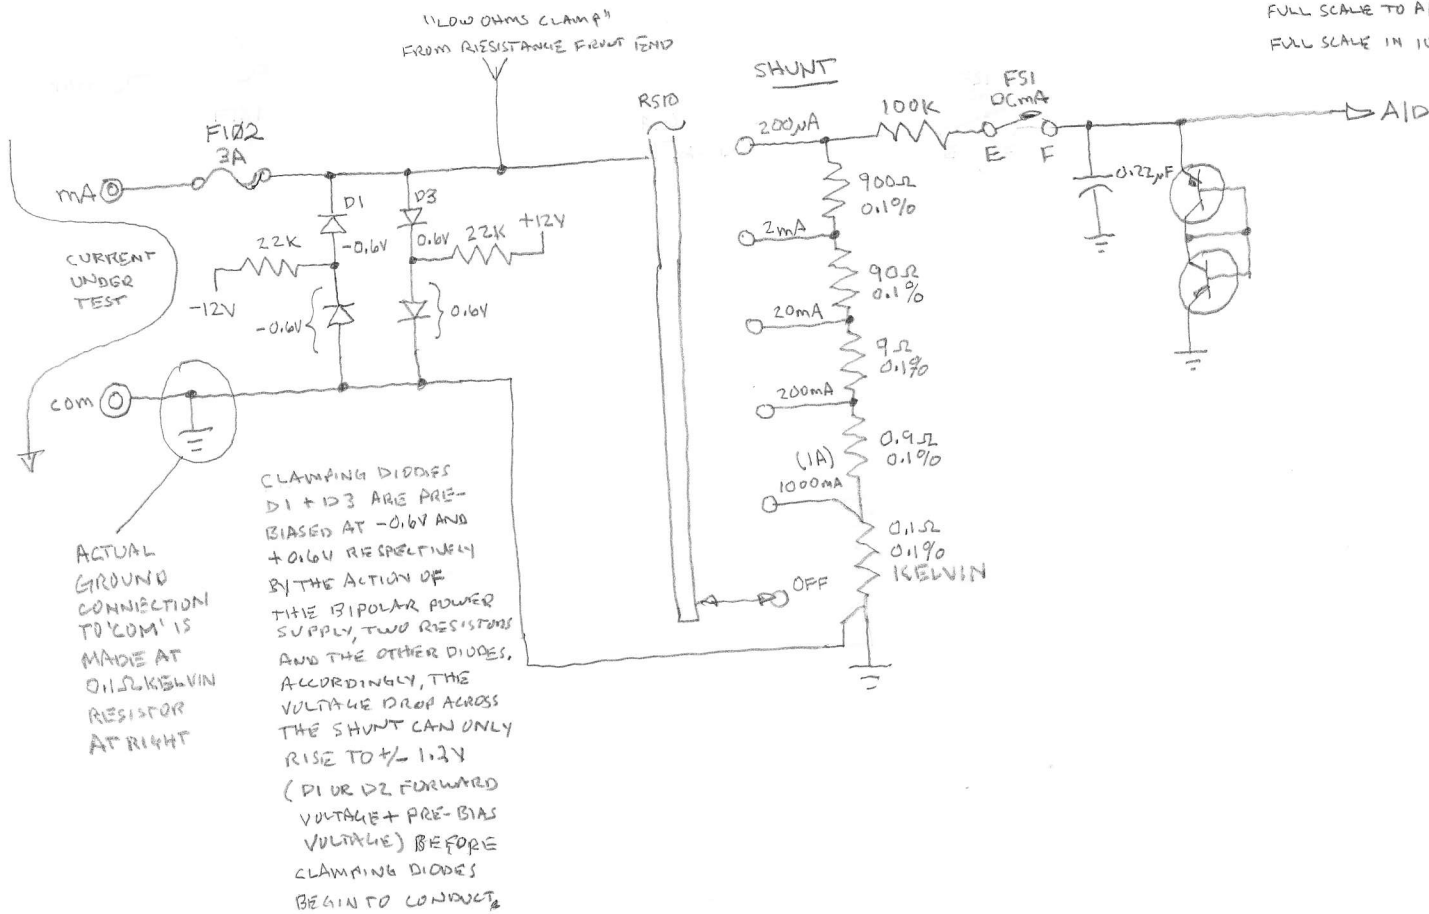 "LOW OHMS CLAMP"
FROM RESISTANCE FRONT END
FULL SCALE TO A/
FULL SCALE IN
SHUNT
FS1
DCmA
RS1D
100K
200µA
A/D
E F
F102
3A
mA
D1
D3
900Ω
0.1%
0.22µF
-0.6V
0.6V
22K
+12V
22K
2mA
CURRENT
UNDER
TEST
-12V
90Ω
0.1%
-0.6V
0.6V
20mA
9Ω
0.1%
com
200mA
0.9Ω
0.1%
(1A)
1000mA
0.1Ω
0.1%
KELVIN
OFF
ACTUAL
GROUND
CONNECTION
TO 'COM' IS
MADE AT
0.1Ω KELVIN
RESISTOR
AT RIGHT
CLAMPING DIODES
D1 + D3 ARE PRE-
BIASED AT -0.6V AND
+0.6V RESPECTIVELY
BY THE ACTION OF
THE BIPOLAR POWER
SUPPLY, TWO RESISTORS
AND THE OTHER DIODES.
ACCORDINGLY, THE
VOLTAGE DROP ACROSS
THE SHUNT CAN ONLY
RISE TO +/- 1.2V
(D1 OR D2 FORWARD
VOLTAGE + PRE-BIAS
VOLTAGE) BEFORE
CLAMPING DIODES
BEGIN TO CONDUCT.